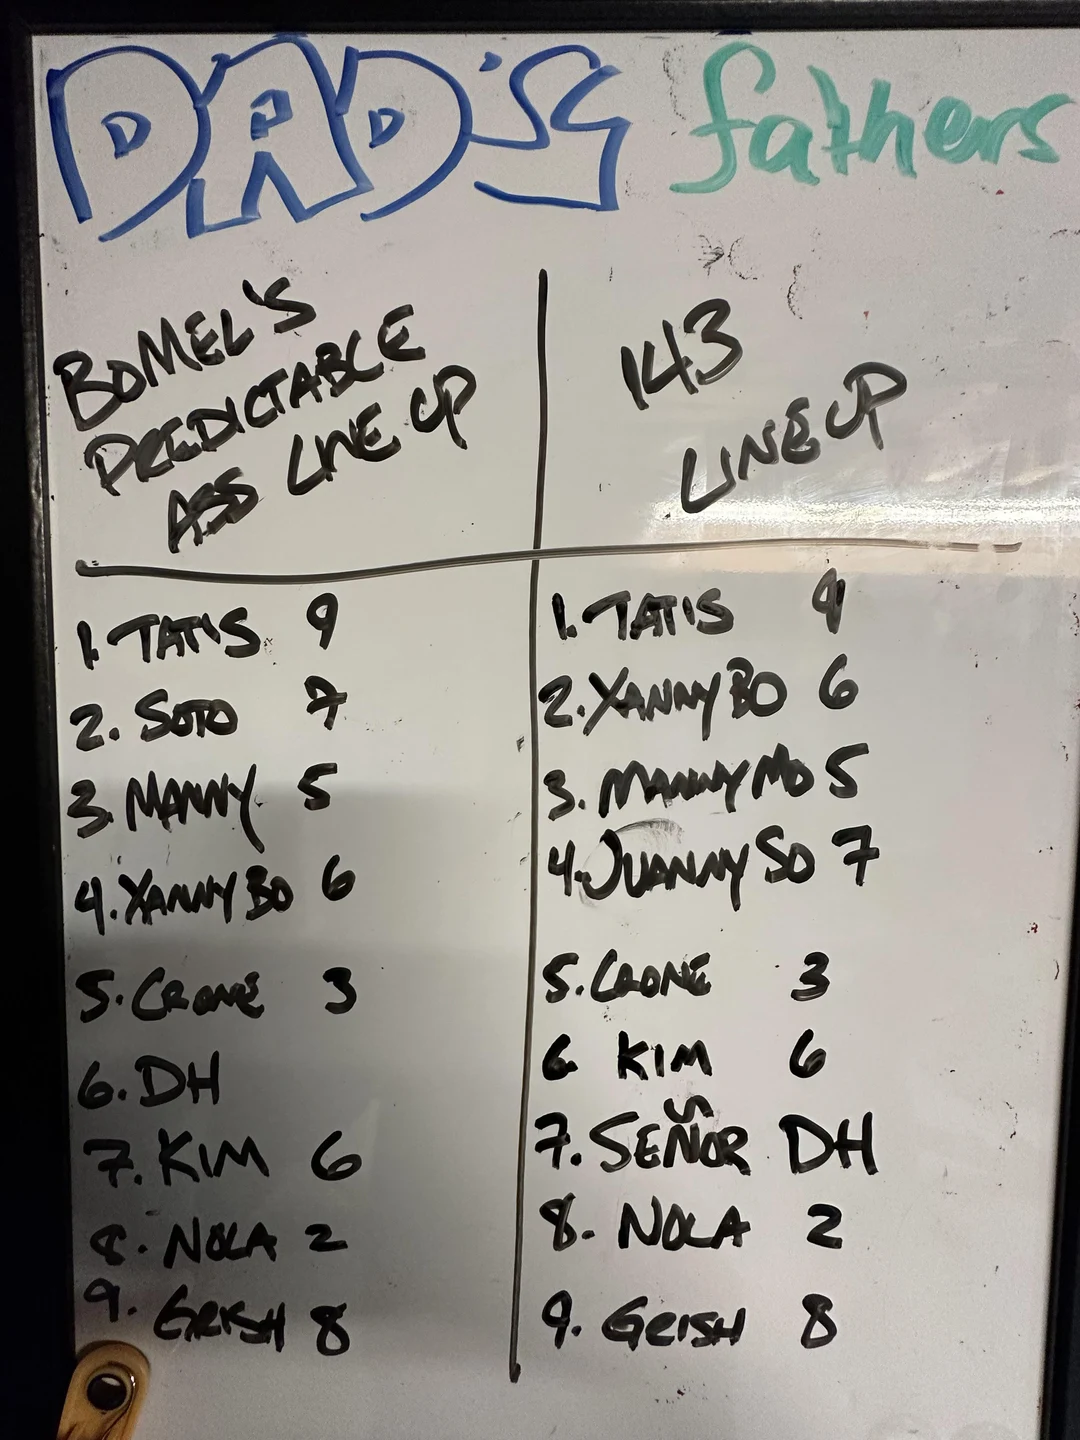 DAD'S fathers
BOMEL'S
PREDICTABLE
ASS LINE UP
1. TATIS 9
2. SOTO 7
3. MANNY 5
4. XANNY BO 6
5. CRONE 3
6. DH
7. KIM 6
8. NOLA 2
9. GRISH 8
143
LINE UP
1. TATIS 9
2. XANNY BO 6
3. MANNY MO 5
4. JUANNY SO 7
5. CRONE 3
6 KIM 6
7. SEÑOR DH
8. NOLA 2
9. GRISH 8